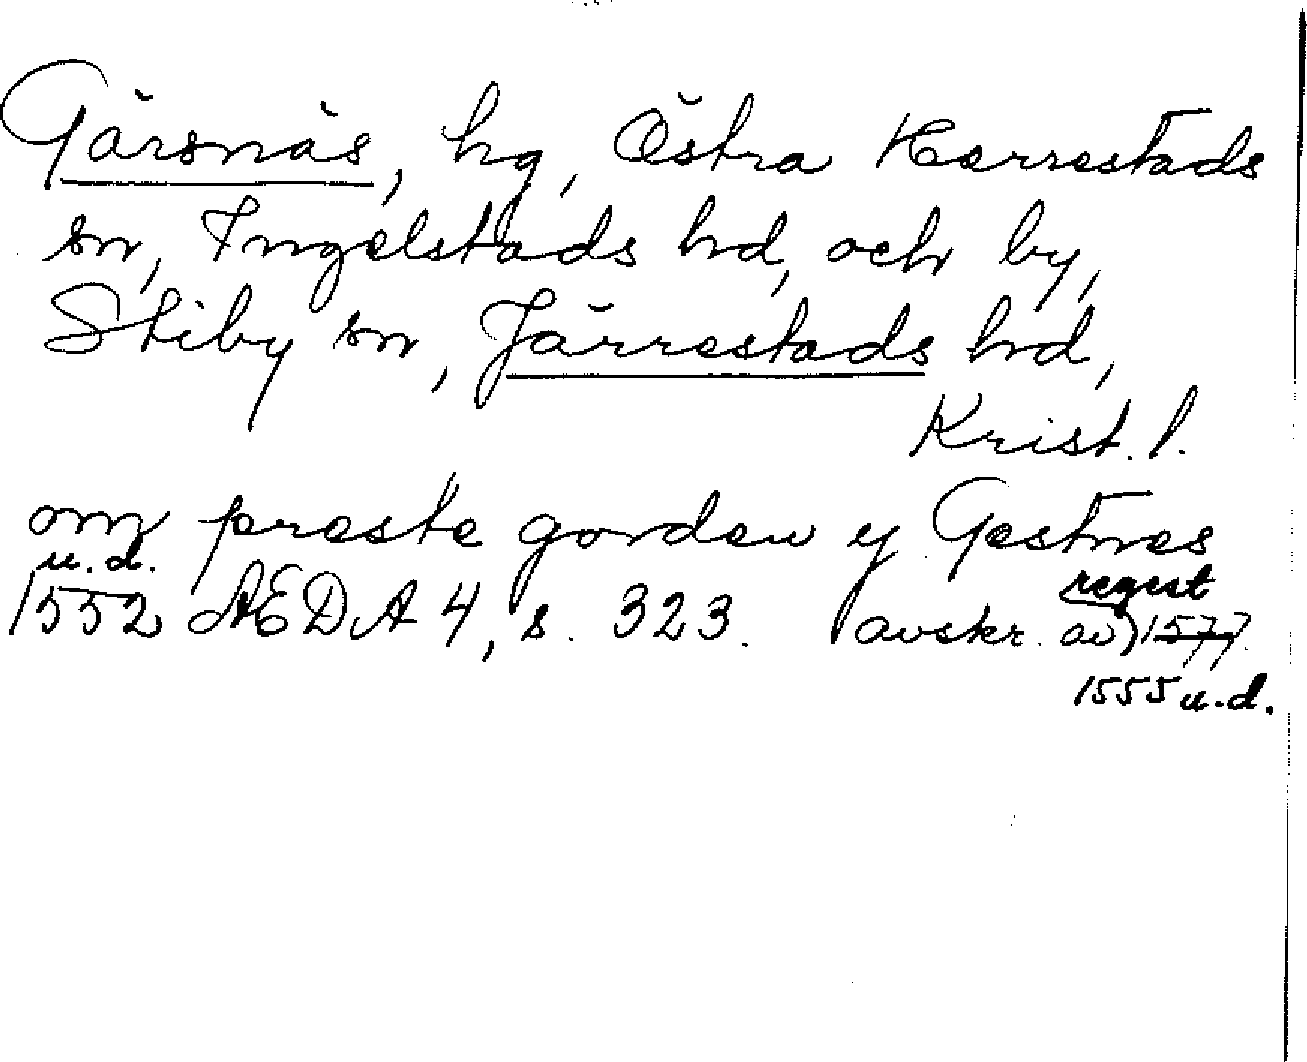 Gärsnäs, hg, Östra Herrestads
sn, Ingelstads hd, och by,
Stiby sn, Järrestads hd,
Krist. l.
om preste gorden y Gestnes
u.d.
1552 AEDA 4, s. 323. avskr. av regest 1577.
1555 u.d.